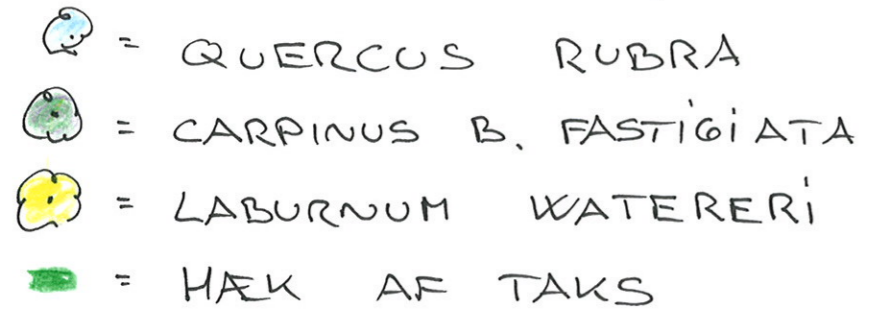 = QUERCUS RUBRA
= CARPINUS B. FASTIGIATA
= LABURNUM WATERERI
= HÆK AF TAKS